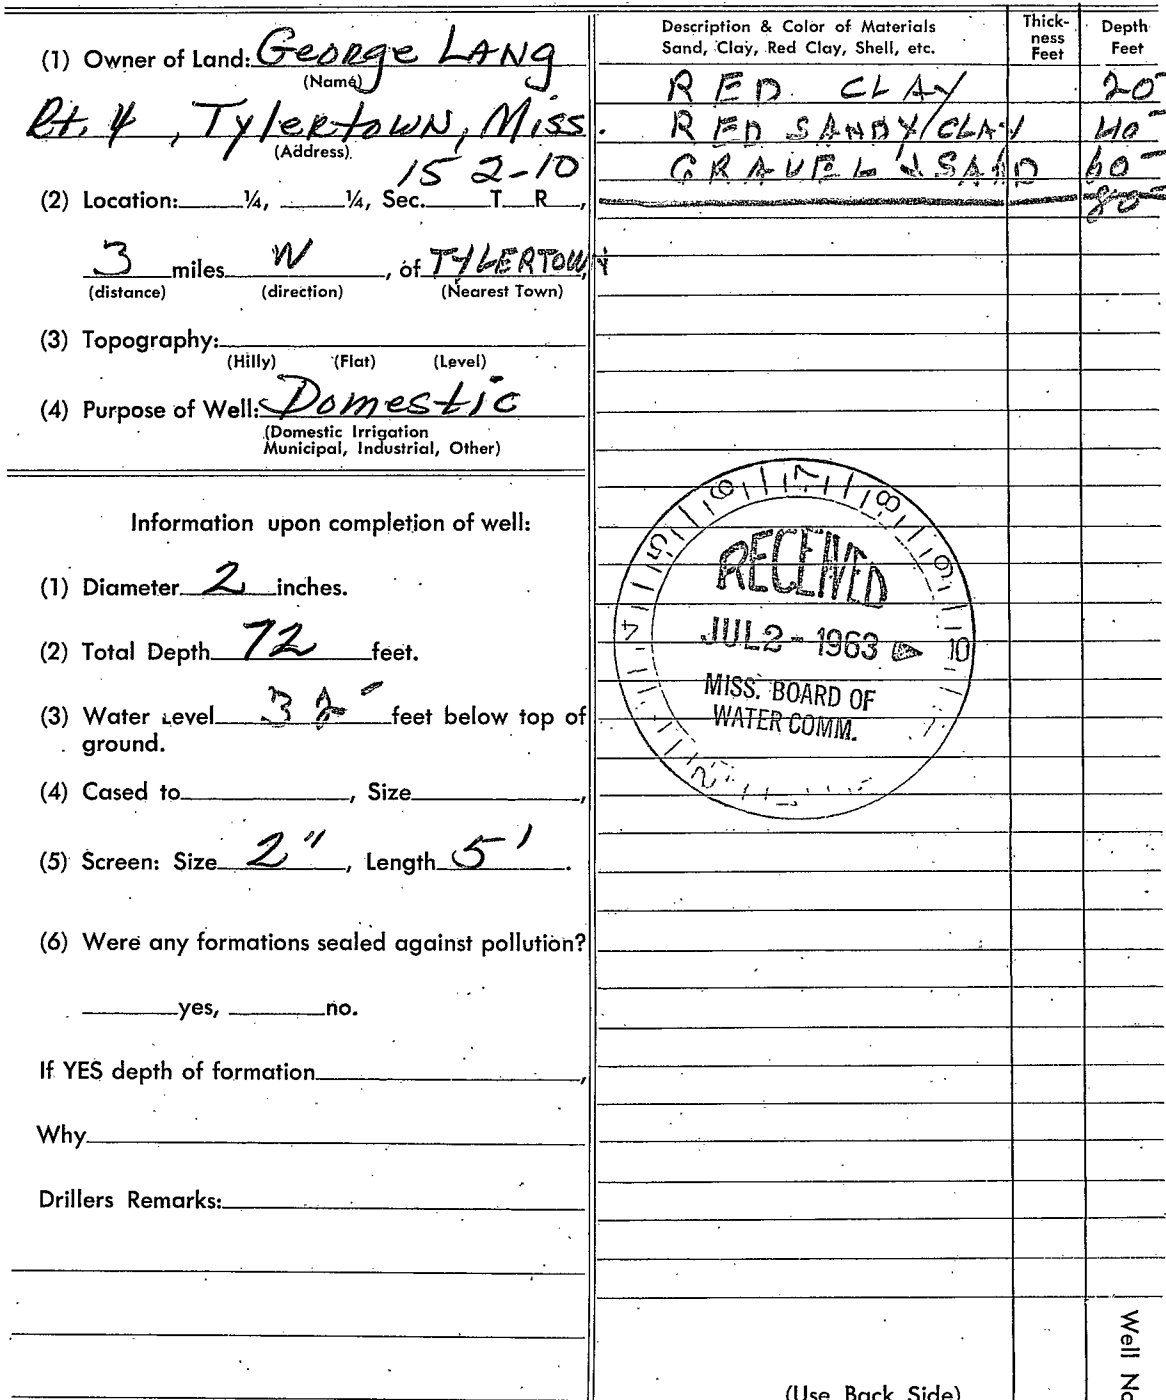 (1) Owner of Land: George LANG
(Name)
Rt. 4, Tylertown, Miss.
(Address)
15 2-10
(2) Location: ¼, ¼, Sec. T. R ,
3 miles W , of TYLERTOWN,
(distance) (direction) (Nearest Town)
(3) Topography:
(Hilly) (Flat) (Level)
(4) Purpose of Well: Domestic
(Domestic Irrigation
Municipal, Industrial, Other)
Information upon completion of well:
(1) Diameter 2 inches.
(2) Total Depth 72 feet.
(3) Water Level 32 feet below top of
ground.
(4) Cased to , Size ,
(5) Screen: Size 2" , Length 5' .
(6) Were any formations sealed against pollution?
yes, no.
If YES depth of formation ,
Why
Drillers Remarks:
Description & Color of Materials
Sand, Clay, Red Clay, Shell, etc.
Thick-
ness
Feet
Depth
Feet
RED CLAY 20
RED SANDY CLAY 40
GRAVEL & SAND 60
80
2 4 5 6 7 8 9 10
RECEIVED
JUL 2 - 1963
MISS. BOARD OF
WATER COMM.
(Use Back Side)
Well No